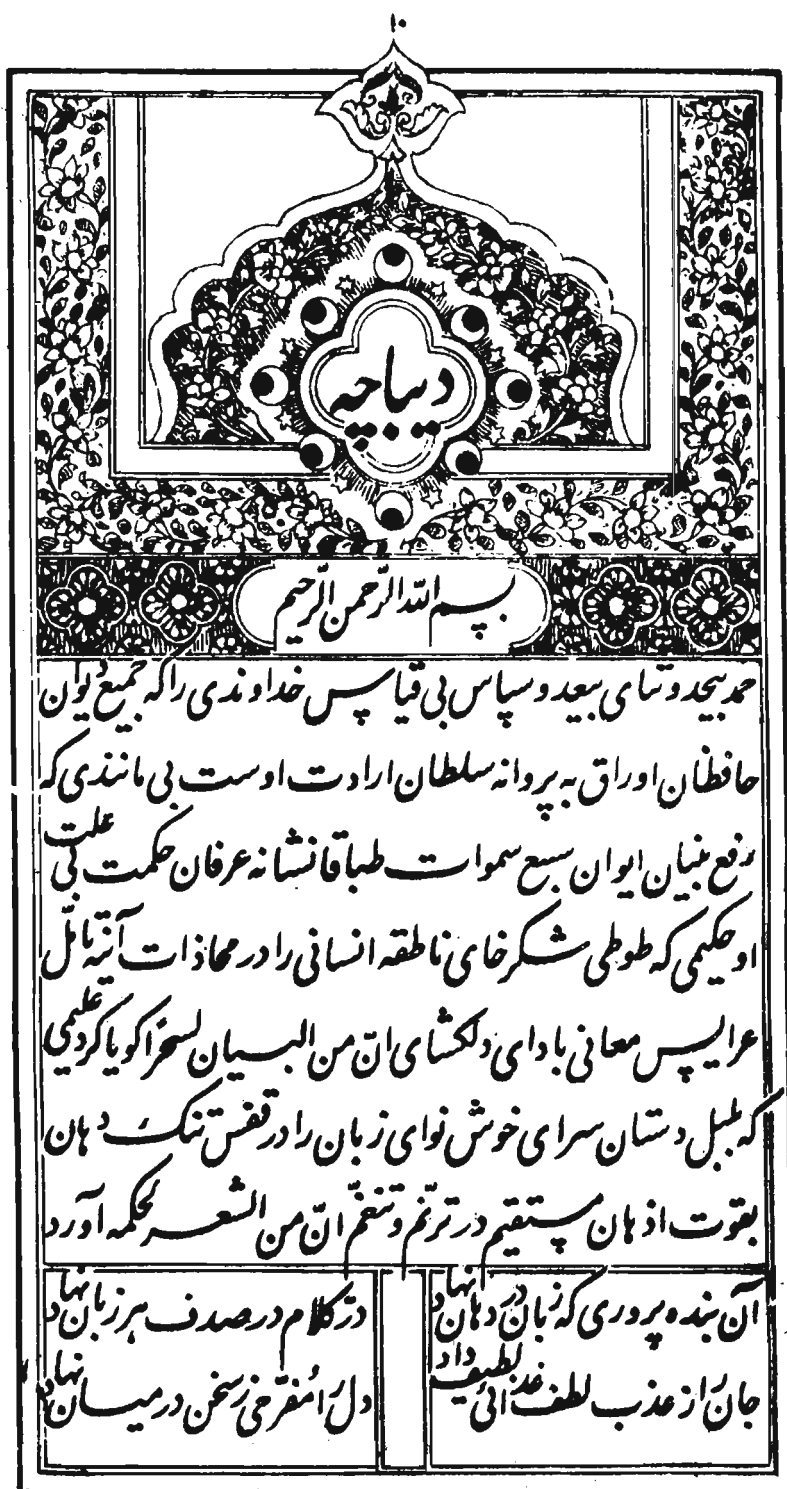 ۱۰
دیباچه
بسم الله الرّحمن الرّحیم
حمد بیحد و ثنای بیعد و سپاس بی قیاس خداوندی را که جمیع دیوان
حافظان اوراق به پروانه سلطان ارادت اوست بی مانندی که
رفع بنیان ایوان سبع سموات طباقا نشانه عرفان حکمت بی علت
او حکیمی که طوطی شکرخای ناطقه انسانی را در محاذات آئینه تامّل
عرایس معانی بادای دلکشای انّ من البیان لسحرًا کویا کرد علیمی
که بلبل دستان سرای خوش نوای زبان را در قفس تنک دهان
بقوت اذهان مستقیم در ترنّم و تنغّم انّ من الشعر لحکمه آورد
آن بنده پروری که زبان در دهان نهاد	درّ کلام در صدف هر زبان نهاد
جان را ز عذب لطف غذائی لطیف داد	دل را مفرّحی ز سخن در میان نهاد